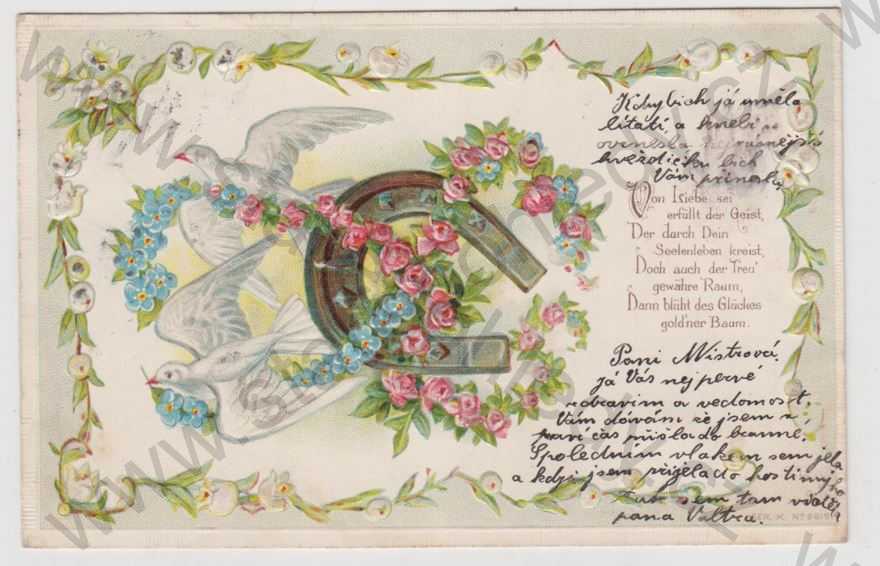 Kdybich já uměla
lítati, a knebi se
hvězdičku bich
Vám přinesla
Von Liebe sei
erfüllt der Geist,
Der durch Dein
Seelenleben kreist,
Doch auch der Treu'
gewähre Raum,
Dann blüht des Glückes
gold'ner Baum.
Paní Mistrová.
já Vás nejpervé
zdravim a vedomost
Vám dávám že jsem v
pravi čas přišla do
Spoledním vlakem sem jela
a kdyj jsem přijela do hostimi
tam viděla
pana Valtra.